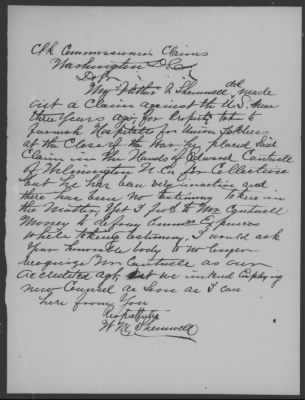 Clk Commissioners Claims
Washington D.C.
D Sir
My Father A. Shemwell decd made
out a Claim against the U.S. near
three years ago, for Property taken to
furnish Hospitals for Union Soldiers
at the Close of the War, he placed said
Claim in the Hands of Edward Cantwell
of Wilmington N.C. for Collection
but he has been very inactive and
there has been no testimony taken in
the Matter, yet I furnd to Mr Cantwell
Money to defray Comms Expenses
while taking testimony, I would ask
your honorable body to no longer
recognize Mr Cantwell as our
accredited agt, as we intend Employing
new Counsel as soon as I can
hear from you
Respectfully
W. M. Shemwell